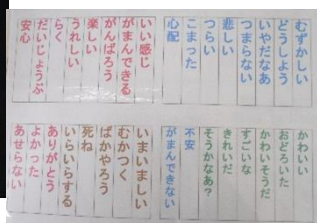 むずかしい
どうしよう
いやだなあ
つまらない
悲しい
つらい
こまった
心配
いい感じ
がまんできる
がんばろう
楽しい
うれしい
らく
だいじょうぶ
安心
かわいい
おどろいた
かわいそうだ
すごいな
きれいだ
そうかなあ?
不安
がまんできない
いまいましい
むかつく
ばかやろう
死ね
いらいらする
ありがとう
よかった
あせらない